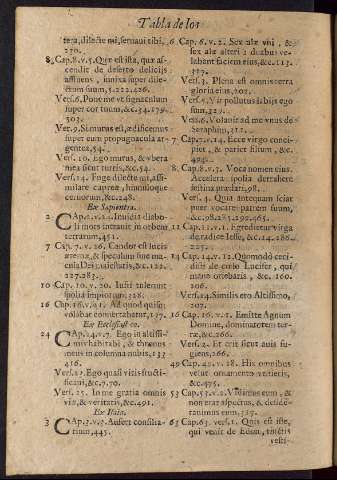 Tabla de los
tera, dilecte mi, seruaui tibi,
250.
8 Cap. 8. v. 5. Quæ est ista, quæ as-
cendit de deserto delicijs
affluens, innixa super dile-
ctum suum, 5. 222. 426.
Vers. 6. Pone me vt signaculum
super cor tuum, &c. 34. 179.
303.
Ver. 9. Si murus est, ædificemus
super eum propugnacula ar-
gentea, 54.
Vers. 10. Ego murus, & vbera
mea sicut turris, &c. 54.
Vers. 14. Fuge dilecte mi, assi-
milare capreæ, hinnuloque
ceruorum, &c. 248.
Ex Sapientia.
2 CAp. 2. v. 24. Inuidia diabo-
li mors intrauit in orbem
terrarum, 451.
7 Cap. 7. v. 26. Candor est lucis
æternæ, & speculum sine ma-
cula Dei maiestatis, &c. 122.
227. 283.
10 Cap. 10. v. 20. Iusti tulerunt
spolia impiorum, 328.
16 Cap. 16. v. 21. Ad quod quisque
volebat conuertabatur, 137.
Ex Ecclesiastico.
24 CAp. 24. v. 7. Ego in altissi-
mis habitabi, & thronus
meus in columna nubis, 133
416.
Vers. 23. Ego quasi vitis fructi-
ficaui, &c. 70.
Vers. 25. In me gratia omnis
viæ, & veritatis, &c. 491.
Ex Isaia.
3 CAp. 3. v. 3. Auferet consilia-
rium, 445.
6 Cap. 6. v. 2. Sex alæ vni, &
sex alæ alteri: duabus ve-
labant faciem eius, &c. 113.
337.
Vers. 3. Plena est omnis terra
gloria eius, 203.
Vers. 5. Vir pollutus labijs ego
sum,
Vers. 6. Volauit ad me vnus de
Seraphim, 312.
7 Cap. 7. v. 14. Ecce virgo conci-
piet, & pariet filium, &c.
8 Cap. 8. v. 3. Voca nomen eius.
Accelera spolia detrahere
festina prædari, 98.
Vers. 4. Quia antequam sciat
puer vocare patrem suum,
&c. 98. 285. 292. 465.
11 Cap. 11. v. 1. Egredietur virga
de radice Iesse, &c. 14. 186.
14 Cap. 14. v. 12. Quomodo ceci-
disti de cœlo Lucifer, qui
mane oriebaris, &c. 160.
206.
Vers. 14. Similis ero Altissimo,
207.
16 Cap. 16. v. 1. Emitte Agnum
Domine, dominatorem ter-
ræ, &c. 266.
Vers. 2. Et erit sicut auis fu-
giens, 266.
49 Cap. 49. v. 18. His omnibus
velut ornamento vestieris,
&c. 475.
53 Cap. 53. v. 2. Vidimus eum, &
non erat aspectus, & deside-
rauimus eum,
63 Cap. 63. vers. 1. Quis est iste,
qui venit de Edom, tinctis
vesti-